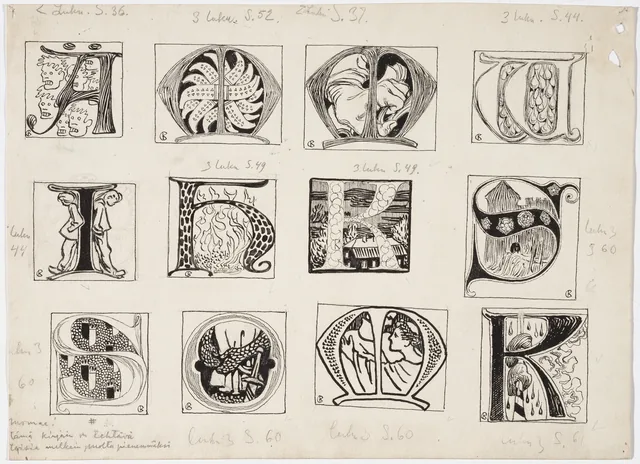 2 Luku. S. 36.
3 Luku S. 52.
2 Luku S. 37.
3 Luku. S. 44.
Ä M M
3 Luku S. 49
3 Luku S. 49.
Luku
44
I H K S
Luku 3
S 60
Luku 3
60
S O M K
#
tämä kirjain on tehtävä
toisia melkein puolta pienemmäksi
Luku 3 S. 60
Luku 3 S. 60
Luku 3 S. 6